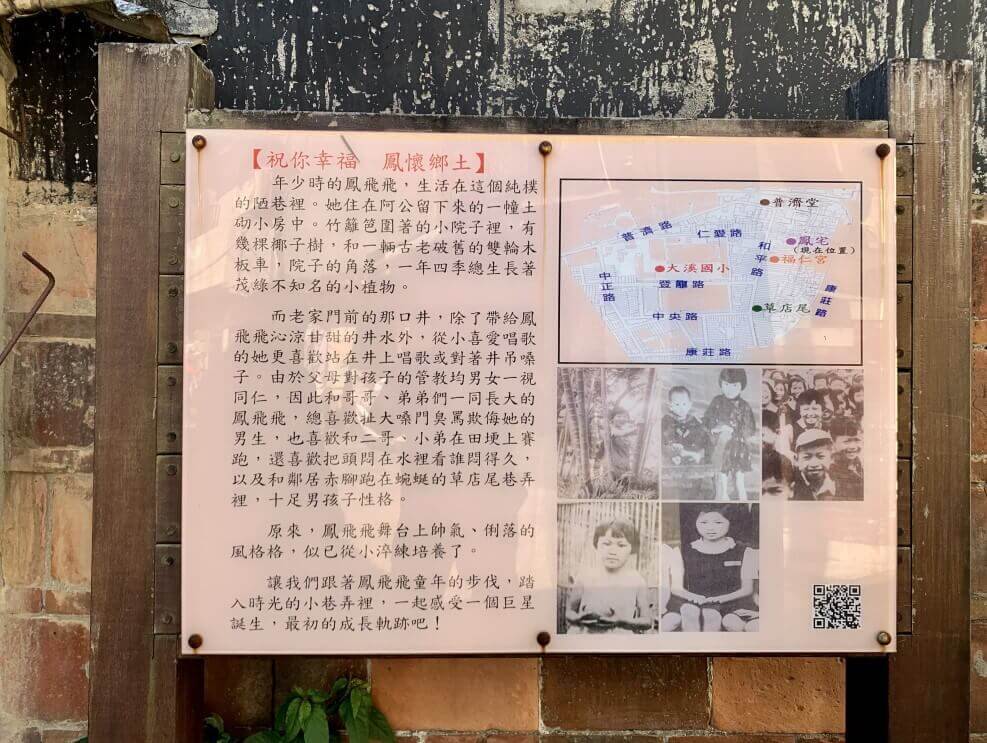 【祝你幸福 鳳懷鄉土】
年少時的鳳飛飛，生活在這個純樸
的陋巷裡。她住在阿公留下來的一幢土
砌小房中。竹籬笆圍著的小院子裡，有
幾棵椰子樹，和一輛古老破舊的雙輪木
板車，院子的角落，一年四季總生長著
茂綠不知名的小植物。
而老家門前的那口井，除了帶給鳳
飛飛沁涼甘甜的井水外，從小喜愛唱歌
的她更喜歡站在井上唱歌或對著井吊嗓
子。由於父母對孩子的管教均男女一視
同仁，因此和哥哥、弟弟們一同長大的
鳳飛飛，總喜歡壯大嗓門臭罵欺侮她的
男生，也喜歡和二哥、小弟在田埂上賽
跑，還喜歡把頭悶在水裡看誰悶得久，
以及和鄰居赤腳跑在蜿蜒的草店尾巷弄
裡，十足男孩子性格。
原來，鳳飛飛舞台上帥氣、俐落的
風格格，似已從小淬練培養了。
讓我們跟著鳳飛飛童年的步伐，踏
入時光的小巷弄裡，一起感受一個巨星
誕生，最初的成長軌跡吧！
普濟堂
普濟路
仁愛路
和平路
鳳宅
(現在位置)
福仁宮
大溪國小
中正路
登龍路
康莊路
草店尾
中央路
康莊路